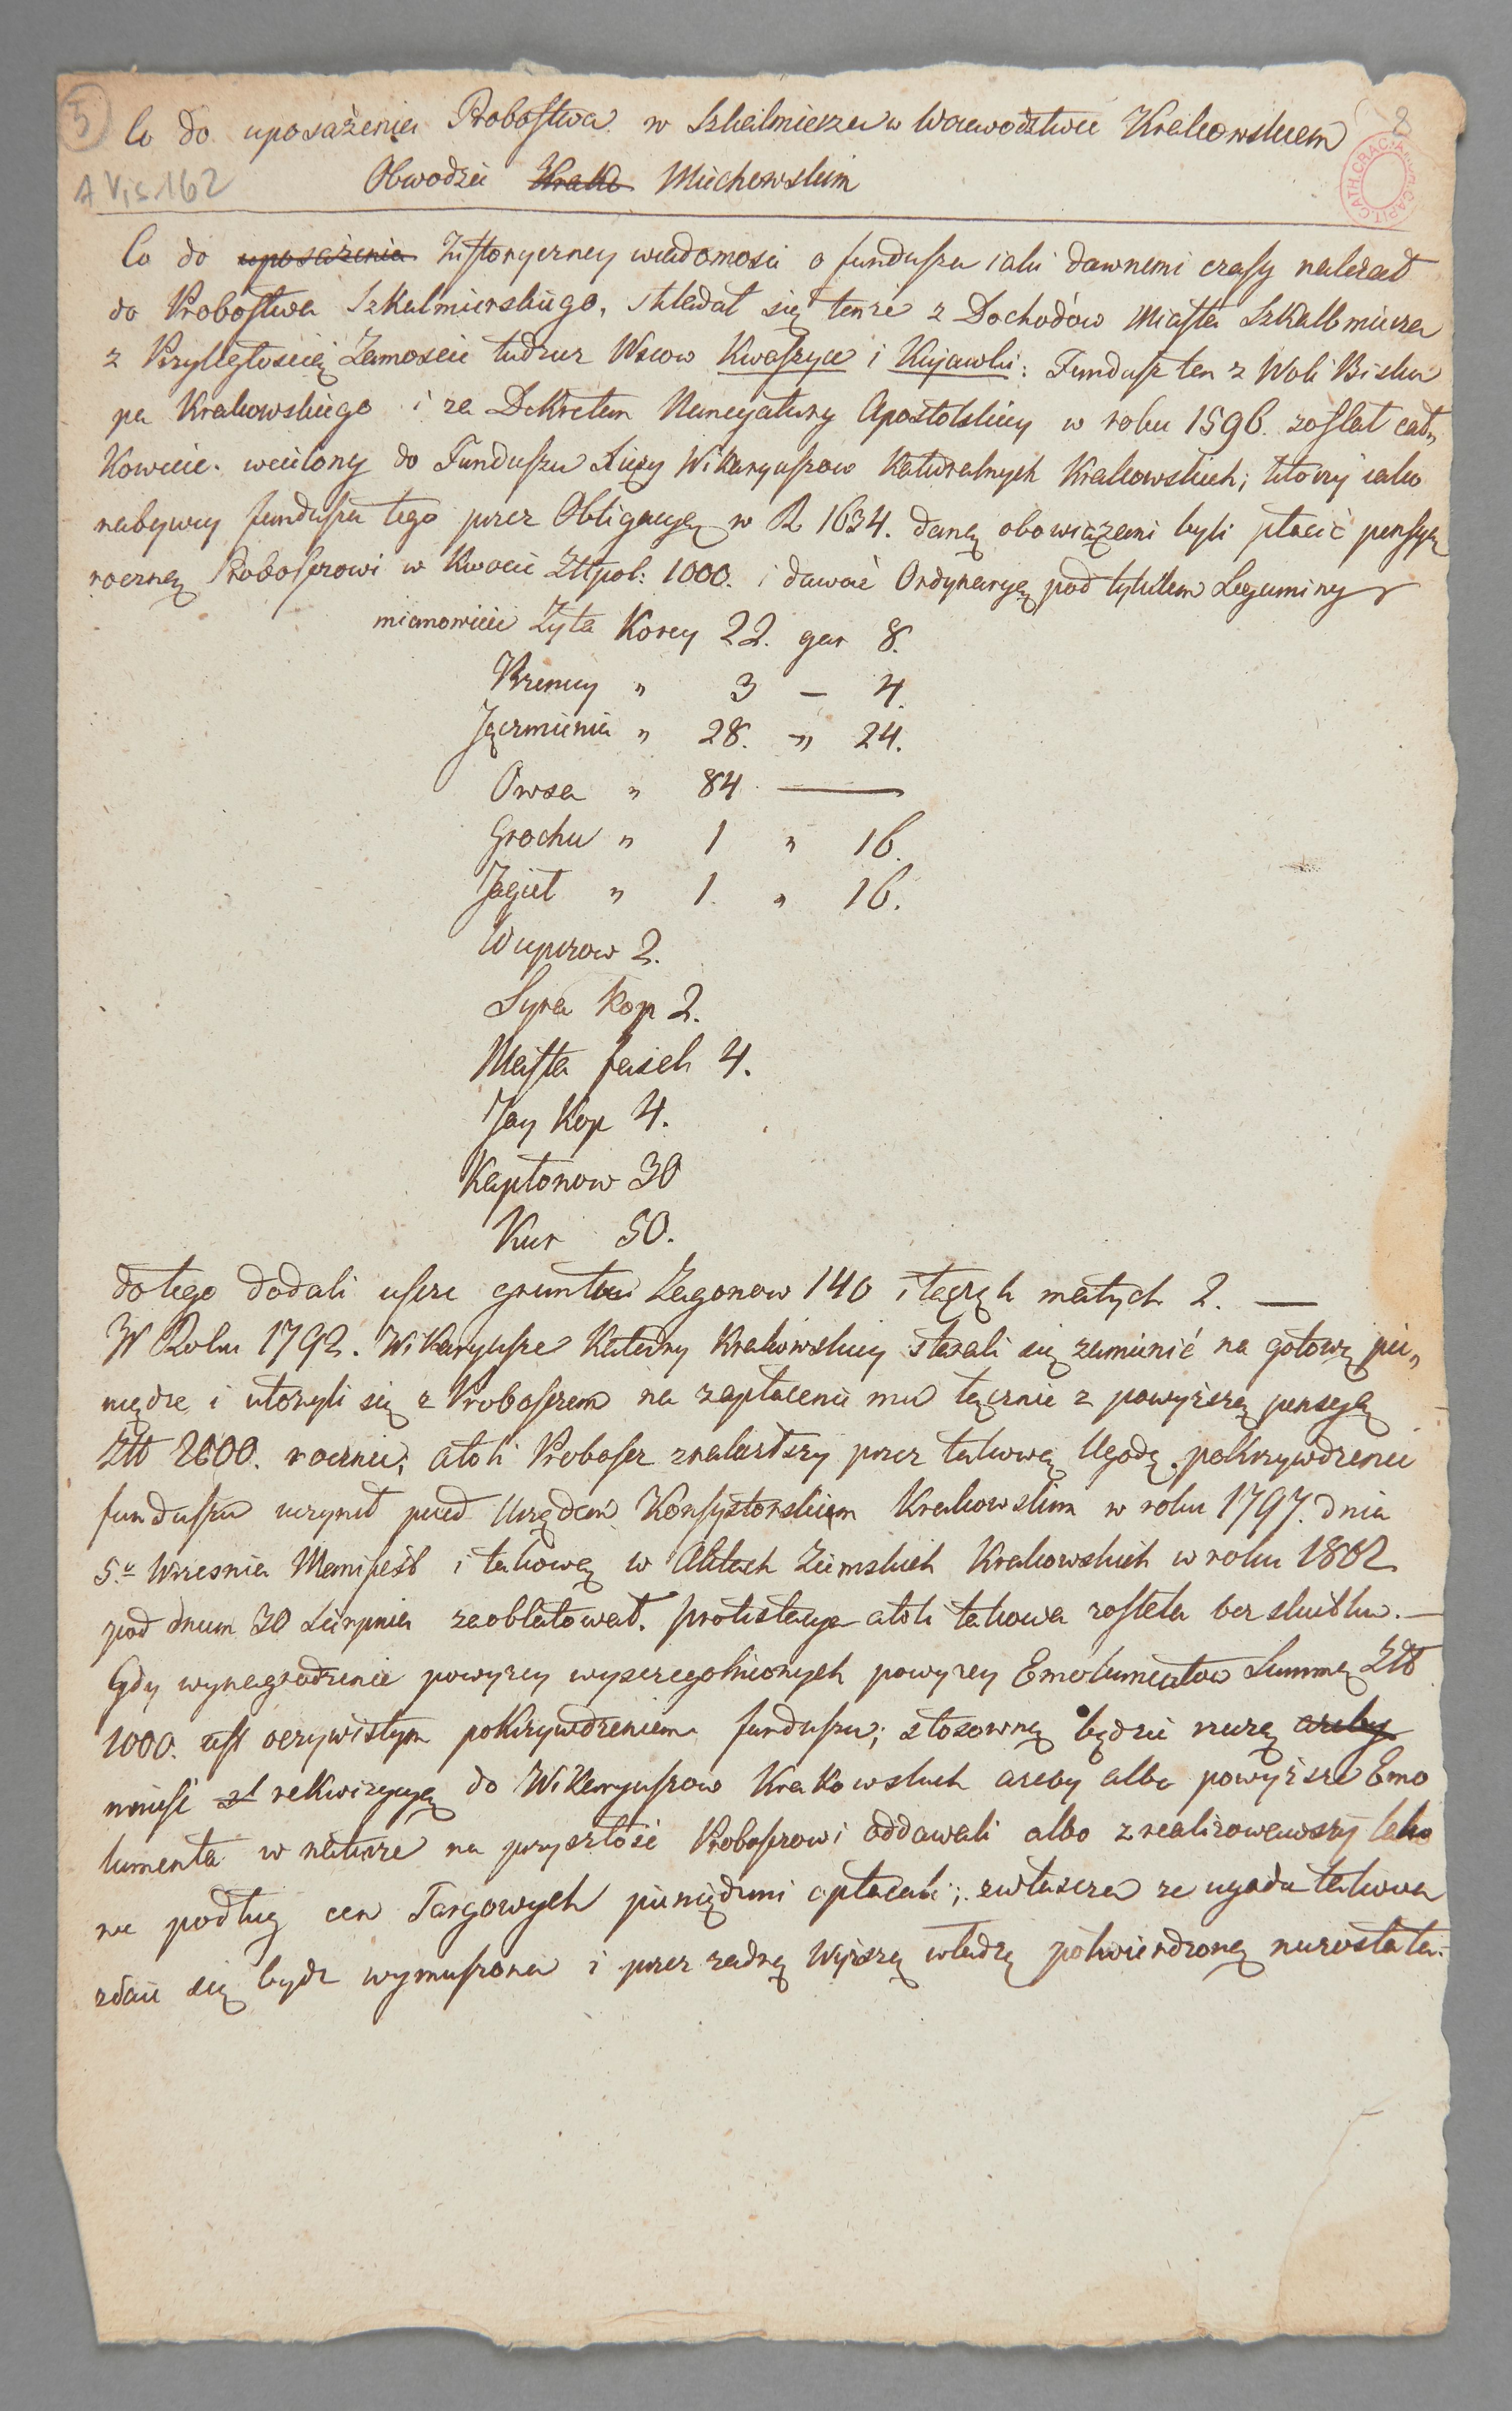 5
8
Co do uposażenia Probostwa w Szkalmierzu w Woiewodztwie Krakowskiem
A Vis. 162
Obwodzie Krako Miechowskim
Co do uposażenia Historyczney wiadomosci o funduszu iaki dawnemi czasy należał
do Probostwa Szkalmierskiego, składał się tenże z Dochodów Miasta Szkallmierza
z Przyległoscią Zamoscie tudzież Wsiow Kwaszyce i Kujawki: Fundusz ten z Woli Bisku
pa Krakowskiego i za Dekretem Nuncyatury Apostolskiey w roku 1596. został cał„
kowicie wcielony do Funduszu Xięży Wikaryuszow Katedralnych Krakowskich; ktorzy iako
nabywcy funduszu tego przez Obligacyą w R 1634. daną obowiązani byli płacić pensyą
roczną Proboszczowi w kwocie Złłpol: 1000. i dawać Ordynaryą pod tytułem Leguminy
mianowicie Zyta Korcy 22. gar 8.
Przenicy „ 3 – 4.
Jęczmienia „ 28. „ 24.
Owsa „ 84 —
Grochu „ 1 „ 16.
Jagieł „ 1. „ 16.
Wieprzow 2.
Syra Kop 2.
Masła fasek 4.
Jay Kop 4.
Kapłonow 30
Kur 50.
do tego dodali ieszcze gruntu Zagonow 140 i łączek małych 2. —
W Roku 1792. Wikaryusze Katedry Krakowskiey starali się zamienić na gotowe pie„
niędze i ułożyli się z Proboszczem na zapłacenie mu łącznie z powyższą pensyą
Złł 2000. rocznie; atoli Proboszcz znalazłszy przez takową Ugodę pokrzywdzenie
funduszu uczynił przed Urzędem Konsystorskim Krakowskim w roku 1797. dnia
5.º Wrzesnia Manifest i takowy w Aktach Ziemskich Krakowskich w roku 1802
pod dniem 30 Sierpnia zaoblatował. protestacya atoli takowa została bez skutku. —
Gdy wynagrodzenie powyzey wyszczegolnionych powyzey Emolumentow Summą Złł
1000. iest oczywistym pokrzywdzeniem funduszu; stosowną będzie rzeczą azeby
wnieść rekwizycyą do Wikaryuszow Krakowskich azeby albo powyższe Emo
lumenta w naturze na przyszłość Proboszczowi oddawali albo zrealizowawszy tako
we podług cen Targowych pieniędzmi opłacali; zwłaszcza ze ugoda takowa
zdaie się bydz wymuszona i przez żadną Wyższą władzę potwierdzoną niezostała.